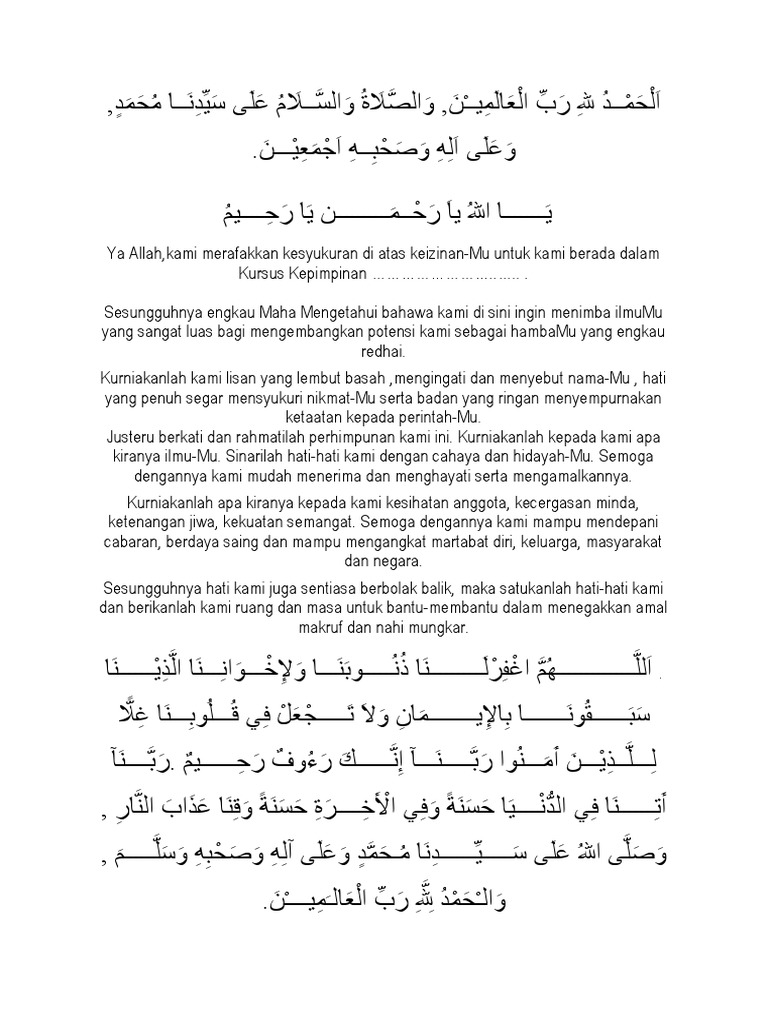 اَلْحَمْـــدُ للهِ رَبِّ الْعَالَمِيـــْنَ, وَالصَّلَاةُ وَالسَّـــلَامُ عَلَى سَيِّدِنَـــا مُحَمَدٍ,
وَعَلَى اَلِهِ وَصَحْبِـــهِ اَجْمَعِيْـــنَ.
يَـــــا اللهُ ياَ رَحْـــمَـــــــن يَا رَحِـــــيمُ
Ya Allah,kami merafakkan kesyukuran di atas keizinan-Mu untuk kami berada dalam
Kursus Kepimpinan ………………………….. .
Sesungguhnya engkau Maha Mengetahui bahawa kami di sini ingin menimba ilmuMu
yang sangat luas bagi mengembangkan potensi kami sebagai hambaMu yang engkau
redhai.
Kurniakanlah kami lisan yang lembut basah ,mengingati dan menyebut nama-Mu , hati
yang penuh segar mensyukuri nikmat-Mu serta badan yang ringan menyempurnakan
ketaatan kepada perintah-Mu.
Justeru berkati dan rahmatilah perhimpunan kami ini. Kurniakanlah kepada kami apa
kiranya ilmu-Mu. Sinarilah hati-hati kami dengan cahaya dan hidayah-Mu. Semoga
dengannya kami mudah menerima dan menghayati serta mengamalkannya.
Kurniakanlah apa kiranya kepada kami kesihatan anggota, kecergasan minda,
ketenangan jiwa, kekuatan semangat. Semoga dengannya kami mampu mendepani
cabaran, berdaya saing dan mampu mengangkat martabat diri, keluarga, masyarakat
dan negara.
Sesungguhnya hati kami juga sentiasa berbolak balik, maka satukanlah hati-hati kami
dan berikanlah kami ruang dan masa untuk bantu-membantu dalam menegakkan amal
makruf dan nahi mungkar.
. اَللَّـــــــــهُمَّ اغْفِرْلَـــــــنَا ذُنُـــــوبَنَـــا وَلإِخْـــوَانِـــنَا الَّذِيْـــــنَا
سَبَـــــقُونَـــــــا بِالإِيـــــــمَانِ وَلاَ تَـــــجْعَلْ فِي قُـــلُوبِـــنَا غِلًّا
لِـــلَّـــذِيْـــنَ أمَـــنُوا رَبَّـــــنَـــآ إِنَّـــــكَ رَءُوفٌ رَحِـــــــيمٌ .رَبَّـــنَآ
أَتِـــــنَا فِي الدُّنْـــيَا حَسَنَةً وَفِي الْأَخِـــرَةِ حَسَنَةً وَقِنَا عَذَابَ النَّارِ ,
وَصَلَّى اللهُ عَلَى سَـــــيِّـــــدِنَا مُـحَمَّدٍ وَعَلَى آلِهِ وَصَحْبِهِ وَسَلَّـــــمَ ,
وَالـْحَمْدُ لِلَّهِ رَبِّ الْعَالـَمِيـــــْنَ.